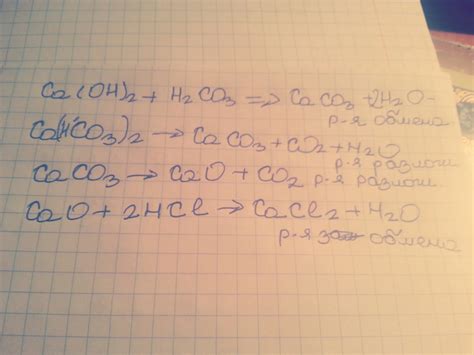 Ca(OH)2 + H2CO3 => CaCO3 + 2H2O -
р-я обмена
Ca(HCO3)2 → CaCO3 + CO2 + H2O
р-я разлож
CaCO3 → CaO + CO2 р-я разлож
CaO + 2HCl → CaCl2 + H2O
р-я обмена